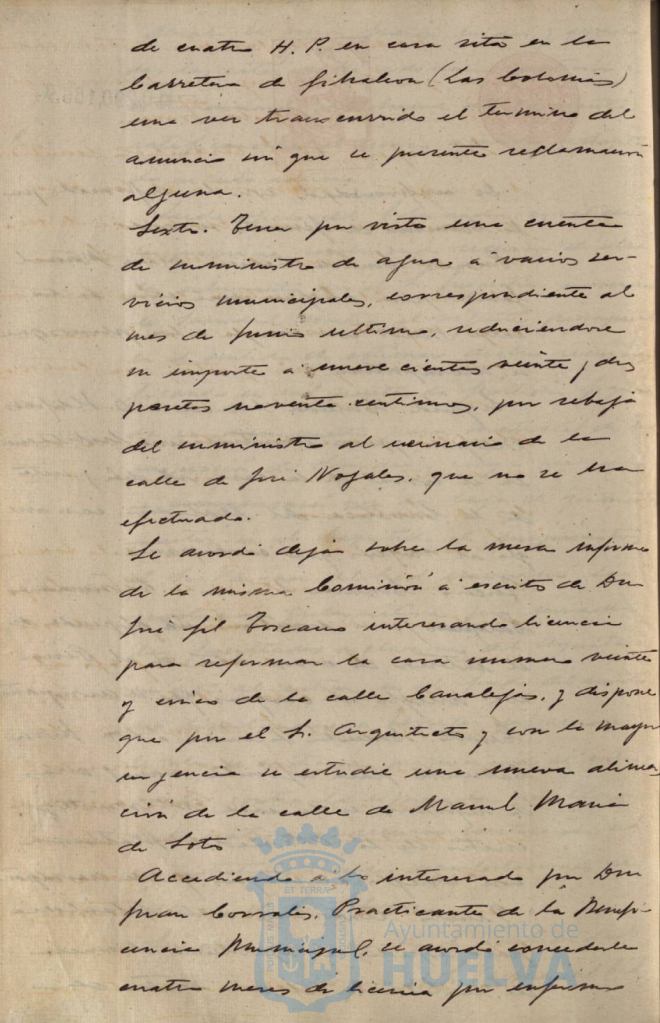 de cuatro H. P. en casa sita en la
Carretera de Gibraleon (Las Colonias)
una vez transcurrido el termino del
anuncio sin que se presente reclamación
alguna.
Sexto. Tener por vista una cuenta
de suministro de agua á varios ser-
vicios municipales, correspondiente al
mes de Junio ultimo, reduciendose
su importe a nueve cientas veinte y dos
pesetas noventa centimos, por rebaja
del suministro al urinario de la
calle de José Nogales, que no se ha
efectuado.
Se acordó dejar sobre la mesa informe
de la misma Comisión á escrito de Don
José Gil Toscano interesando licencia
para reformar la casa numero veinte
y cinco de la calle Canalejas, y dispone
que por el Sr. Arquitecto y con la mayor
urgencia se estudie una nueva alinea
ción de la calle de Manuel Maria
de Soto
Accediendo a lo interesado por Don
Juan Corrales, Practicante de la Benefi-
cencia Municipal, se acordó concederle
cuatro meses de licencia por enfermo
ET TERRAE
Ayuntamiento de
HUELVA